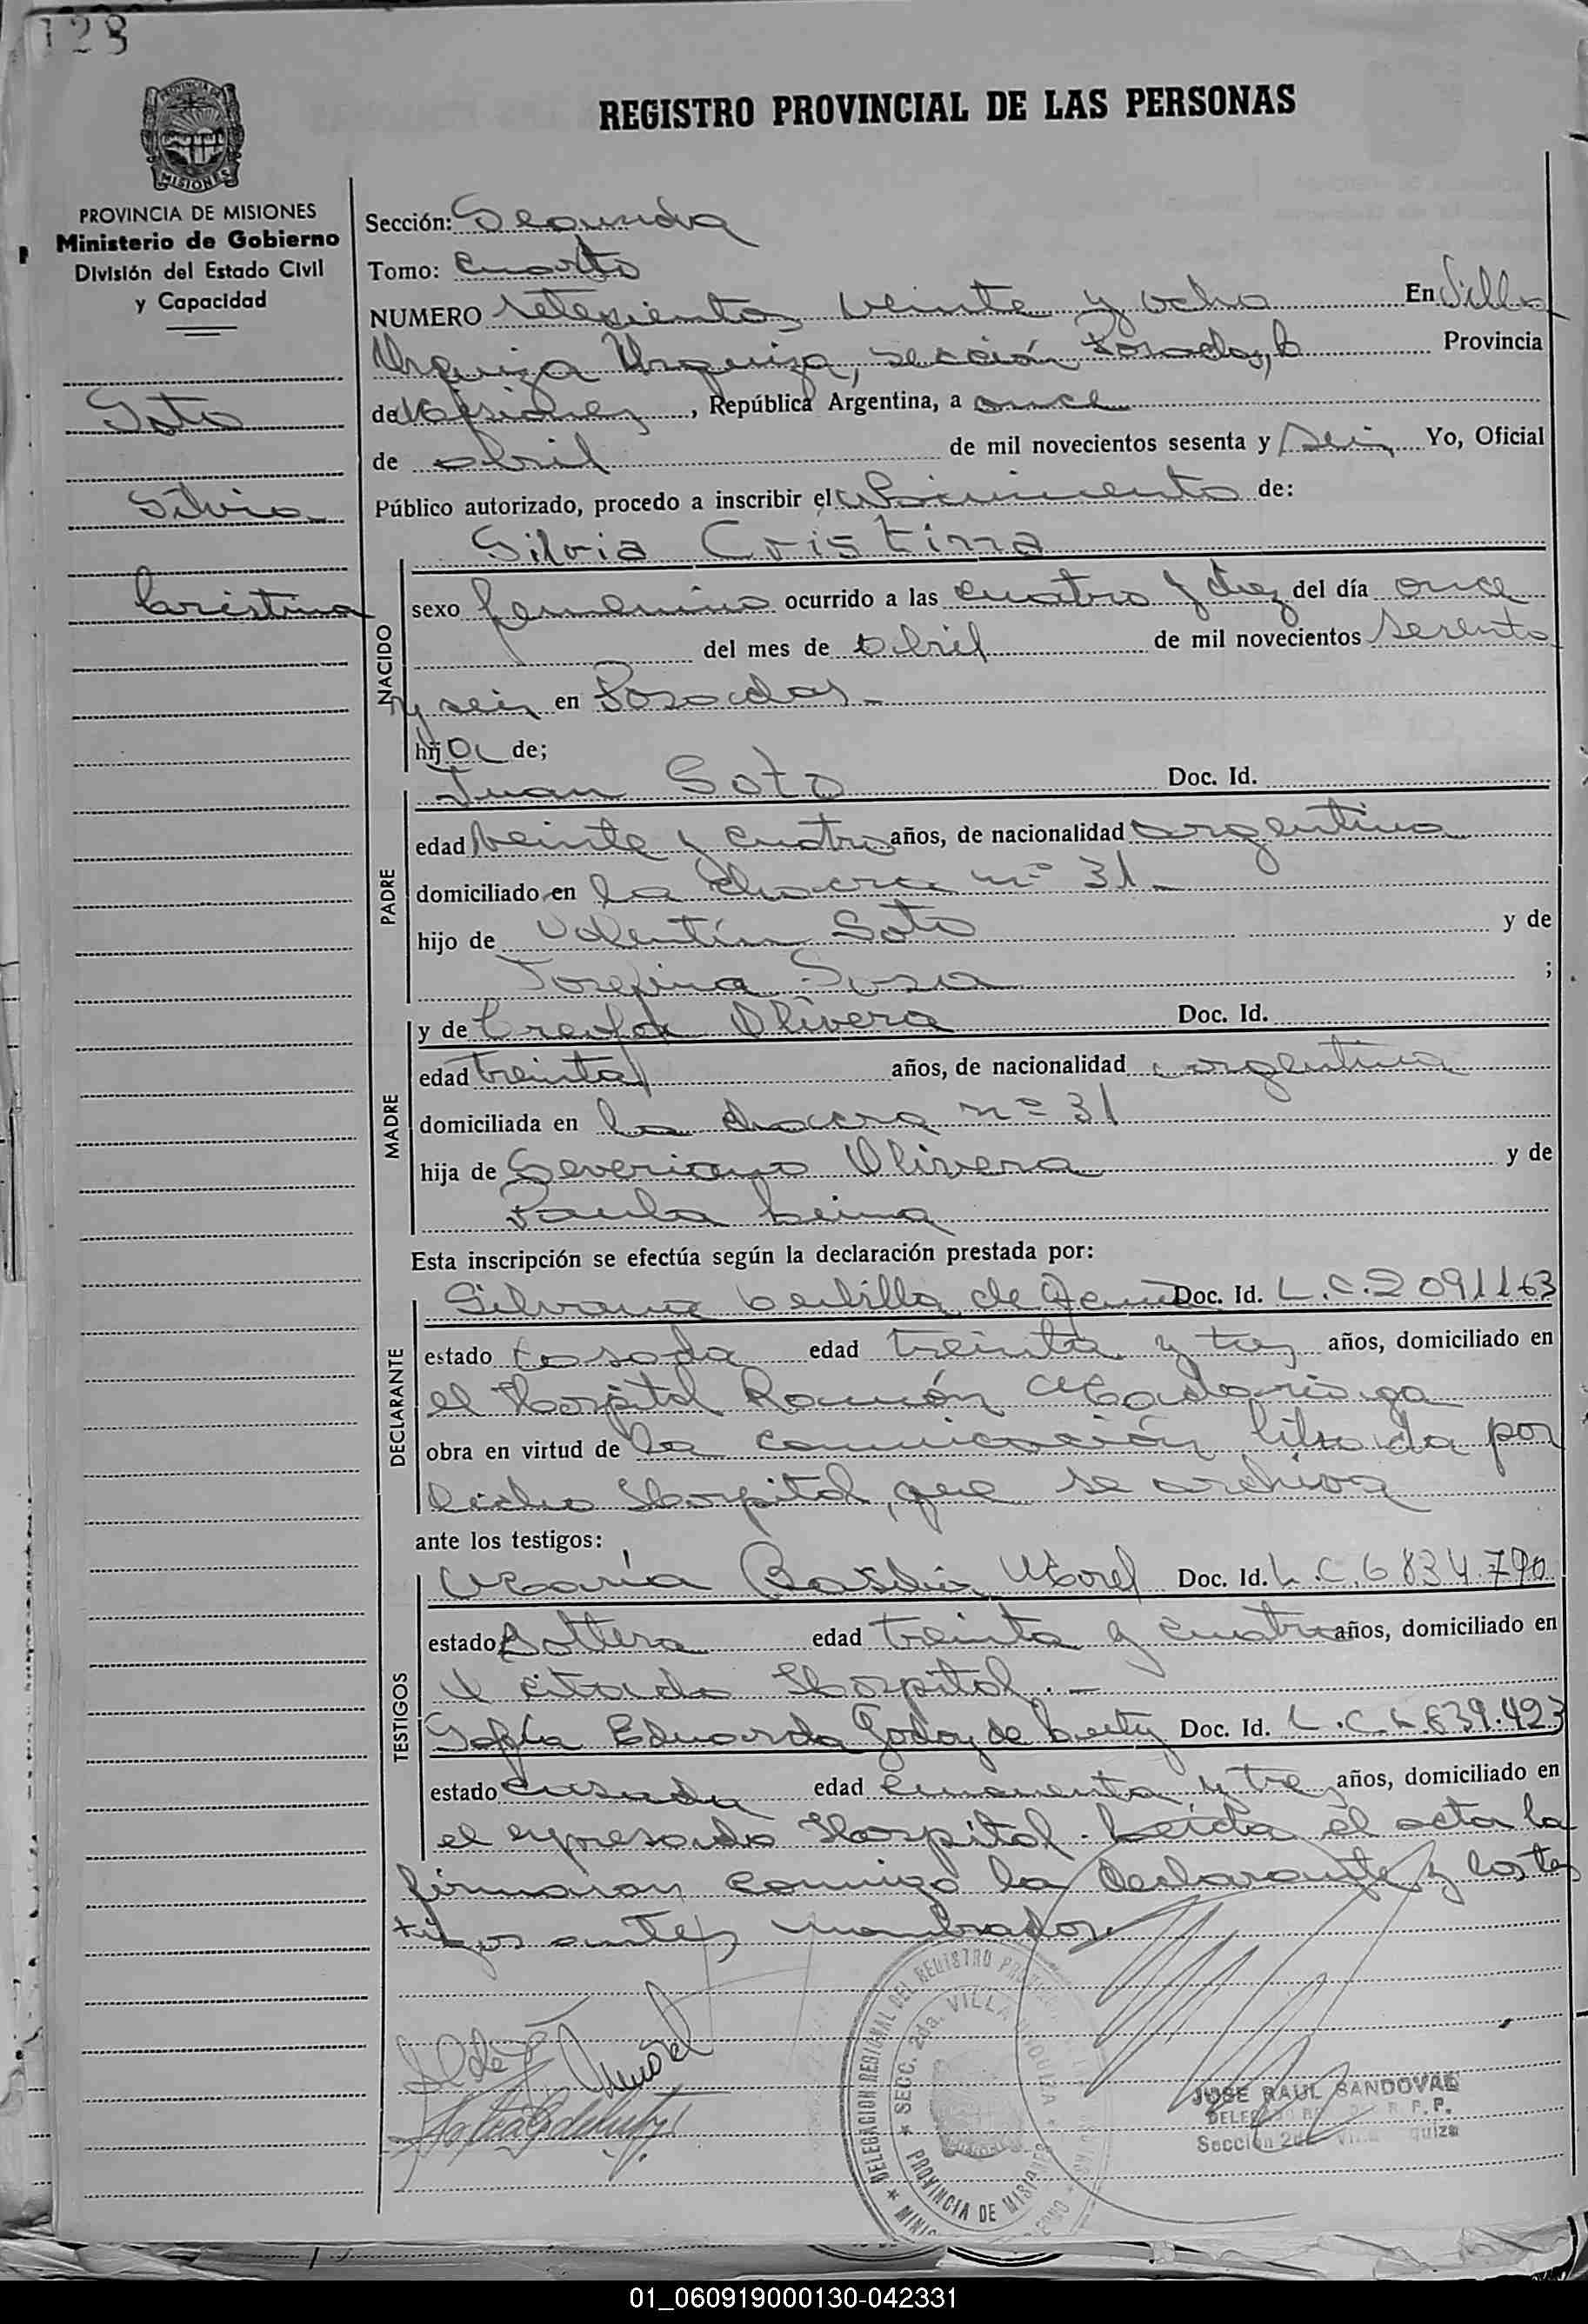 128
REGISTRO PROVINCIAL DE LAS PERSONAS
MISIONES
PROVINCIA DE MISIONES
Ministerio de Gobierno
División del Estado Civil
y Capacidad
Soto
Silvia
Cristina
Sección: Segunda
Tomo: Cuarto
NUMERO setesientos veinte y ocho En Villa
Urquiza Urquiza, sección Posadas,
Provincia
de Misiones, República Argentina, a once
de abril de mil novecientos sesenta y seis Yo, Oficial
Público autorizado, procedo a inscribir el Nacimiento de:
NACIDO
Silvia Cristina
sexo femenino ocurrido a las cuatro y diez del día once
del mes de Abril de mil novecientos sesenta
y seis en Posadas.-
hija de;
PADRE
Juan Soto Doc. Id.
edad veinte y cuatro años, de nacionalidad argentino
domiciliado en la chacra nº 31.-
hijo de Valentín Soto y de
Josefina Sosa ;
MADRE
y de Olivera Doc. Id.
edad treinta años, de nacionalidad argentina
domiciliada en la chacra nº 31
hija de Severiano Olivera y de
Paula
Esta inscripción se efectúa según la declaración prestada por:
DECLARANTE
Silvana de Doc. Id. L.C. 2091163
estado casada edad treinta y tres años, domiciliado en
el Hospital Ramón Madariaga
obra en virtud de la comunicación librada por
dicho Hospital, que se archiva
ante los testigos:
TESTIGOS
María Morel Doc. Id. L.C. 6834.790
estado soltera edad treinta y cuatro años, domiciliado en
el citado Hospital.-
Sofía Eduarda Godoy de Doc. Id. L.C. 6.839.423
estado casada edad cuarenta y tres años, domiciliado en
el expresado Hospital. Leída el acta la
firmaron conmigo la Declarante y los tes
tigos antes nombrados.
DELEGACION REGIONAL DEL REGISTRO
SECC. 2da. VILLA URQUIZA
PROVINCIA DE MISIONES
JOSE RAUL SANDOVAL
Sección 2da
01_060919000130-042331